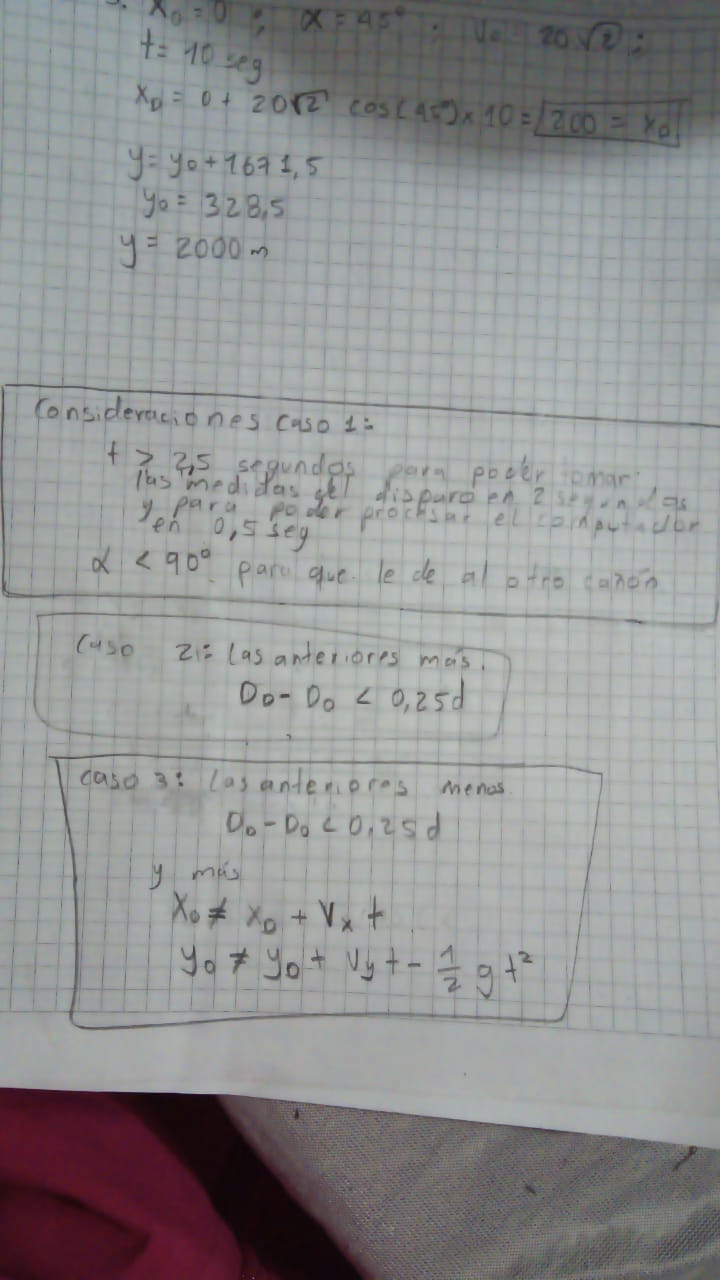 X₀ = 0 ; α = 45° ; V₀ = 20√2 ;
t = 10 seg
X_D = 0 + 20√2 cos(45°) x 10 = 200 = X_D
y = y₀ + 1671,5
y₀ = 328,5
y = 2000 m
Consideraciones caso 1:
t > 2,5 segundos para poder tomar
las medidas del disparo en 2 segundos
y para poder procesar el computador
en 0,5 seg
α < 90° para que le de al otro cañón
Caso 2: Las anteriores más.
D_D - D₀ < 0,25d
caso 3: Las anteriores menos
D₀ - D₀ < 0,25d
y más
X₀ ≠ X_D + Vx t
y₀ ≠ y_D + Vy t - 1/2 g t²